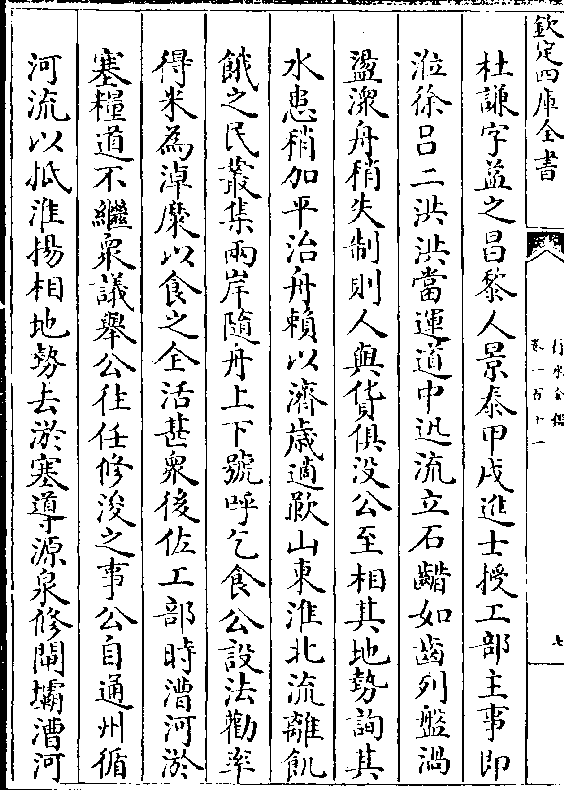 欽定四庫全書
行水金鑑
卷一百十一
七
杜謙字益之昌黎人景泰甲戌進士授工部主事即
涖徐吕二洪洪當運道中迅流立石齰如齒列盤渦
盪潨舟稍失制則人與貨俱没公至相其地勢詢其
水患稍加平治舟賴以濟歳適歉山東淮北流離飢
餓之民叢集兩岸隨舟上下號呼乞食公設法勸率
得米為淖糜以食之全活甚衆後佐工部時漕河淤
塞糧道不繼衆議舉公往任修浚之事公自通州循
河流以抵淮揚相地勢去淤塞導源泉修閘壩漕河